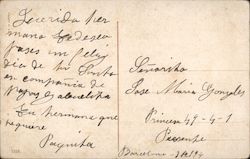 Querida her
mana te deseo
pases un feliz
dia de tu Santo
en compañia de
papas y abuelita
Tu hermana que
te quiere
Paquita
Señorita
Jose Maria Gonzales
Princesa 47-4-1
Presente
Barcelona